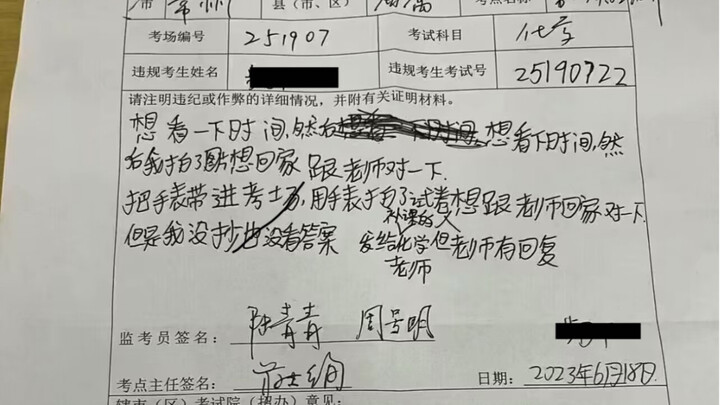 市 常州 县(市、区) 考点名称
考场编号 251907 考试科目 化学
违规考生姓名 违规考生考试号 25190722
请注明违纪或作弊的详细情况,并附有关证明材料。
想看一下时间,然后 想看下时间,然
后我拍了图片想回家跟老师对一下.
把手表带进考场,用手表拍了试卷想跟老师回家对一下.
但是我没抄也没看答案 发给化学补课的人但老师有回复
老师
监考员签名: 陆青青 周号明
考点主任签名:
日期: 2023年6月18日.
辖市(区)考试院(招办)意见: